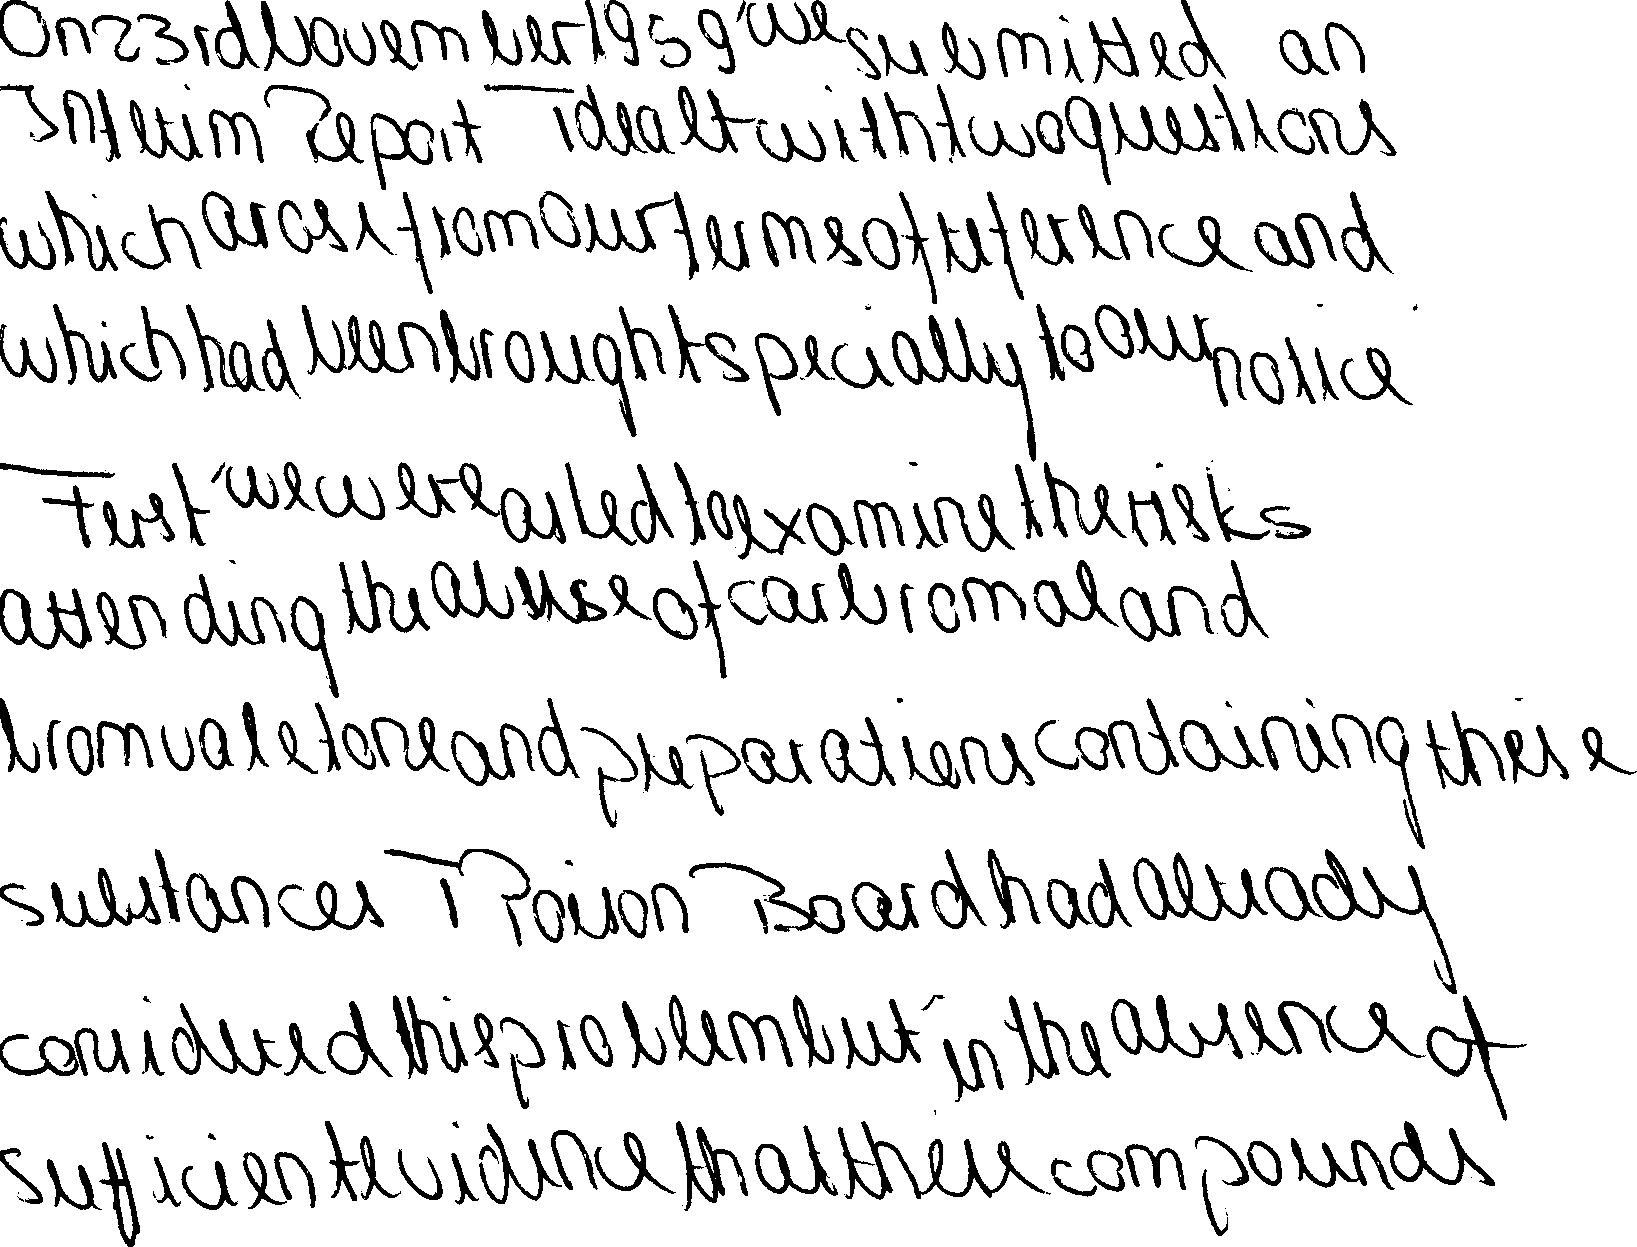 On 23rd November 1959 we submitted an
Interim Report I dealt with two questions
which arose from our terms of reference and
which had been brought specially to our notice
First we were asked to examine the risks
attending the abuse of carbromal and
bromvaletone and preparations containing these
substances T Poison Board had already
considered this problem but in the absence of
sufficient evidence that these compounds